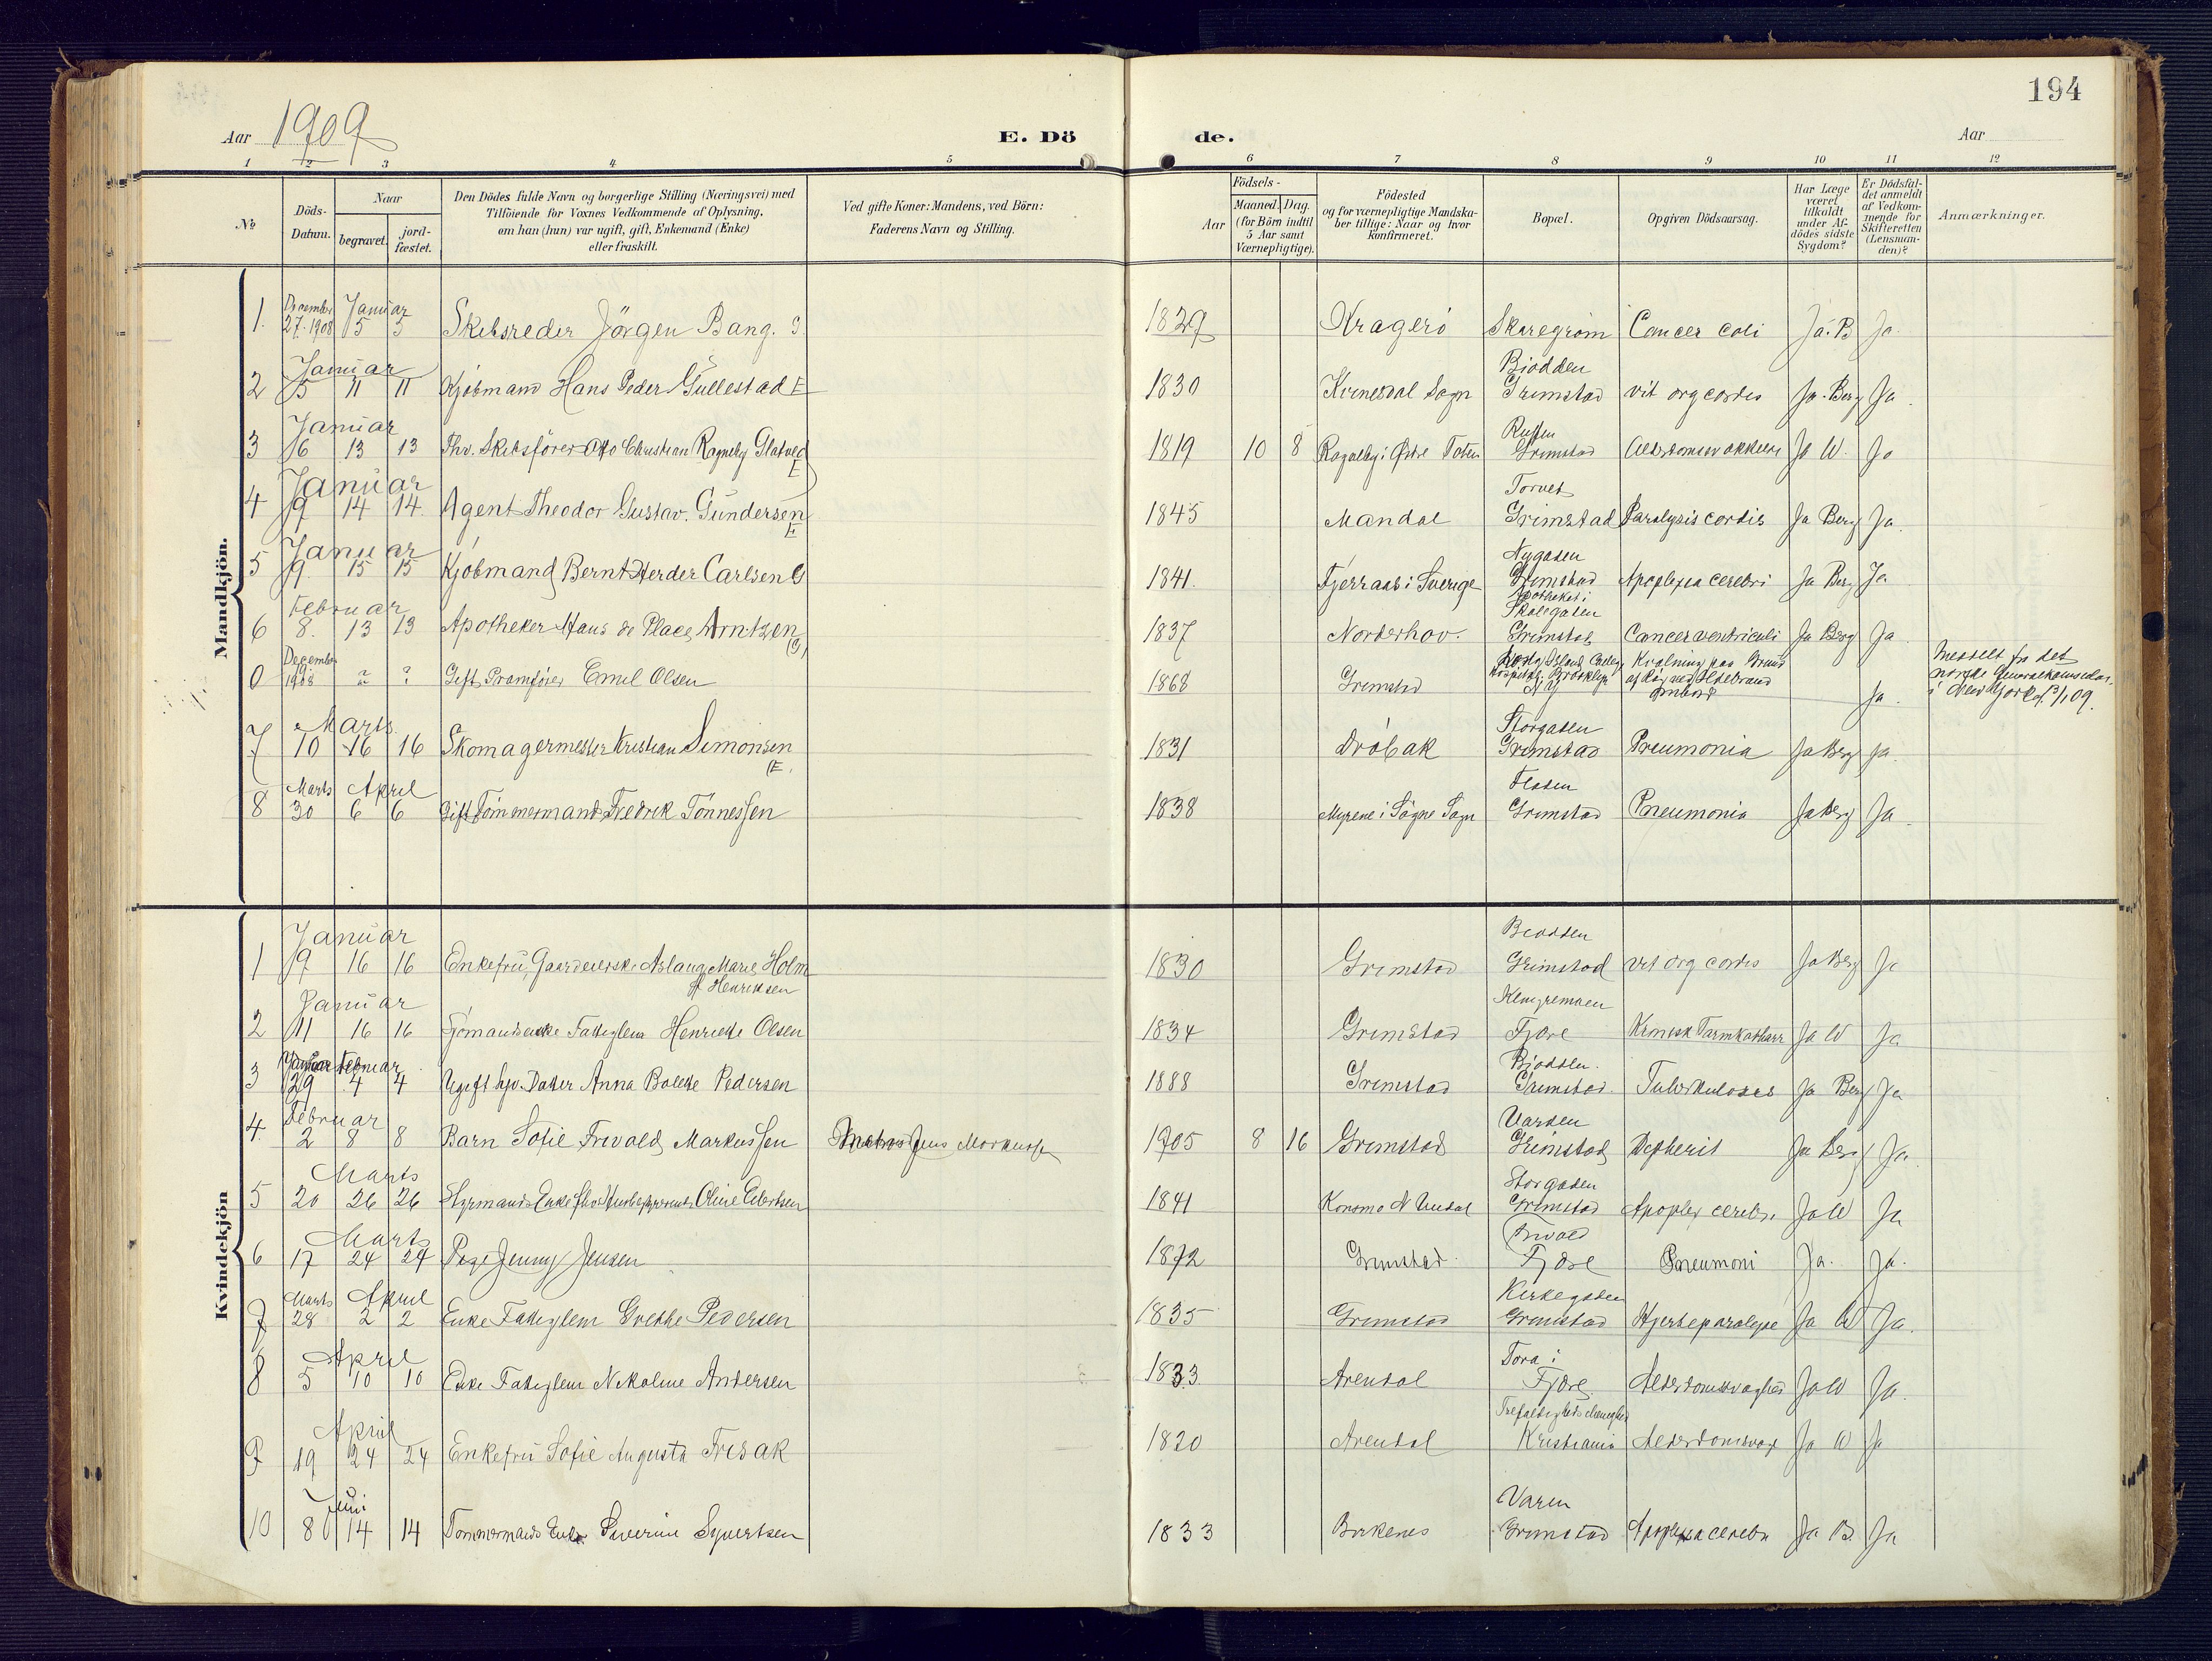 194
Aar 1909 E. Dö de. Aar
1 2 3 4 5 6 7 8 9 10 11 12
№
Döds-
Datum.
Naar
begravet.
jord-
fæstet.
Den Dödes fulde Navn og borgerlige Stilling (Næringsvei) med
Tilföiende for Voxnes Vedkommende af Oplysning,
om han (hun) var ugift, gift, Enkemand (Enke)
eller fraskilt.
Ved gifte Koner: Mandens, ved Börn:
Faderens Navn og Stilling.
Födsels-
Aar
Maaned. Dag.
(for Börn indtil
5 Aar samt
Værnepligtige).
Födested
og for værnepligtige Mandska-
ber tillige: Naar og hvor
konfirmeret.
Bopæl.
Opgiven Dödsaarsag.
Har Læge
været
tilkaldt
under Af-
dödes sidste
Sygdom?
Er Dödsfal-
det anmeldt
af Vedkom-
mende for
Skifteretten
(Lensman-
den)?
Anmærkninger.
Mandkjön.
December Januar
1. 27. 1908 5 5 Skibsreder Jörgen Bang. G. 1829 Kragerö Skaregrøm Cancer coli Ja. B Ja.
Januar Biodden
2 5 11 11 Kjöbmand Hans Peder Gullestad E 1830 Kvinesdal Sogn Grimstad vit org cordis Ja. Berg Ja.
Januar
3 6 13 13 Fhv. Skibsförer Otto Christian Rogneby Glatved E 1819 10 8 Rogneby i Östre Toten Grimstad Ja W. Ja
Januar Torvet
4 9 14 14. Agent Theodor Gustav. Gundersen E 1845 Mandal Grimstad Paralysis cordis Ja Berg Ja.
Januar Nygaden
5 9. 15 15 Kjöbmand Bernt Herder Carlsen G 1841. Fjerraas i Sverige Grimstad Apoplexia cerebri Ja Berg Ja
Februar Apotheket i
Skolegaden
6 8. 13 13 Apotheker Hans de Place Arntzen (G) 1837 Norderhov. Grimstad Cancer ventriculi Ja Berg Ja
December
0 1908 ? ? Gift Pramförer Emil Olsen 1868 Grimstad Island College Hospital, Brooklyn N.Y. Kvælning paa Grund af Røg ved Ildebrand ombord Ja.
Meddelt fra det
norske Generalkonsulat
i New York d. 3/1 09.
Marts Storgaden
7 10 16 16 Skomagermester Kristian Simonsen (E. 1831 Dröbak Grimstad Pneumonia Ja Berg Ja.
Marts April
8 30 6 6 Gift Tömmermand Fredrik Tönnessen 1838 Myrene i Sögne Sogn Grimstad Pneumonia Ja Berg Ja.
Kvindekjön
Januar Biodden
1 9 16 16 Enkefru, Gaardeierske Aslaug Marie Holm
f. Henriksen 1830 Grimstad Grimstad vit org cordis Ja Berg Ja
Januar
2 11 16 16 Sjömandsenke Fattiglem Henriette Olsen 1834 Grimstad Fjære Kronisk Tarmkatharr Ja W Ja
Januar Februar Biodden.
3 29 4 4 Ugift Datter Anna Bolette Pedersen 1888 Grimstad Grimstad. Tuberkuloses Ja Berg Ja
Februar Varden
4. 2 8 8 Barn Sofie Frivold Markussen Matros Jens Markussen 1905 8 16 Grimstad Grimstad Depherit Ja Berg Ja
Marts Storgaden
5 20 26 26 Styrmands Enke Oline Eilertsen 1841 Konsmo N Undal Grimstad Apoplex cerebri Ja W Ja
Marts Frivold
6 17 24 24 Pige Jenny Jensen 1872 Grimstad. Fjære Pneumoni Ja. Ja.
Marts April Kirkegaden
7 28 2 2 Enke Fattiglem Grethe Pedersen 1835 Grimstad Grimstad Hjerteparalyse Ja W Ja.
April Tora i
8 5 10 10 Enke Fattiglem Nikoline Andersen 1833. Arendal Fjære Alderdomssvaghed Ja W Ja.
April Trefoldigheds Menighed
9 19 24 24 Enkefru Sofie Augusta Frisak 1820 Arendal Kristiania Alderdomssvag Ja W Ja
Juni
10 8 14 14 Tömmermands Enke Severine Syvertsen 1833 Birkenes Grimstad Apoplexia cerebri Ja B. Ja